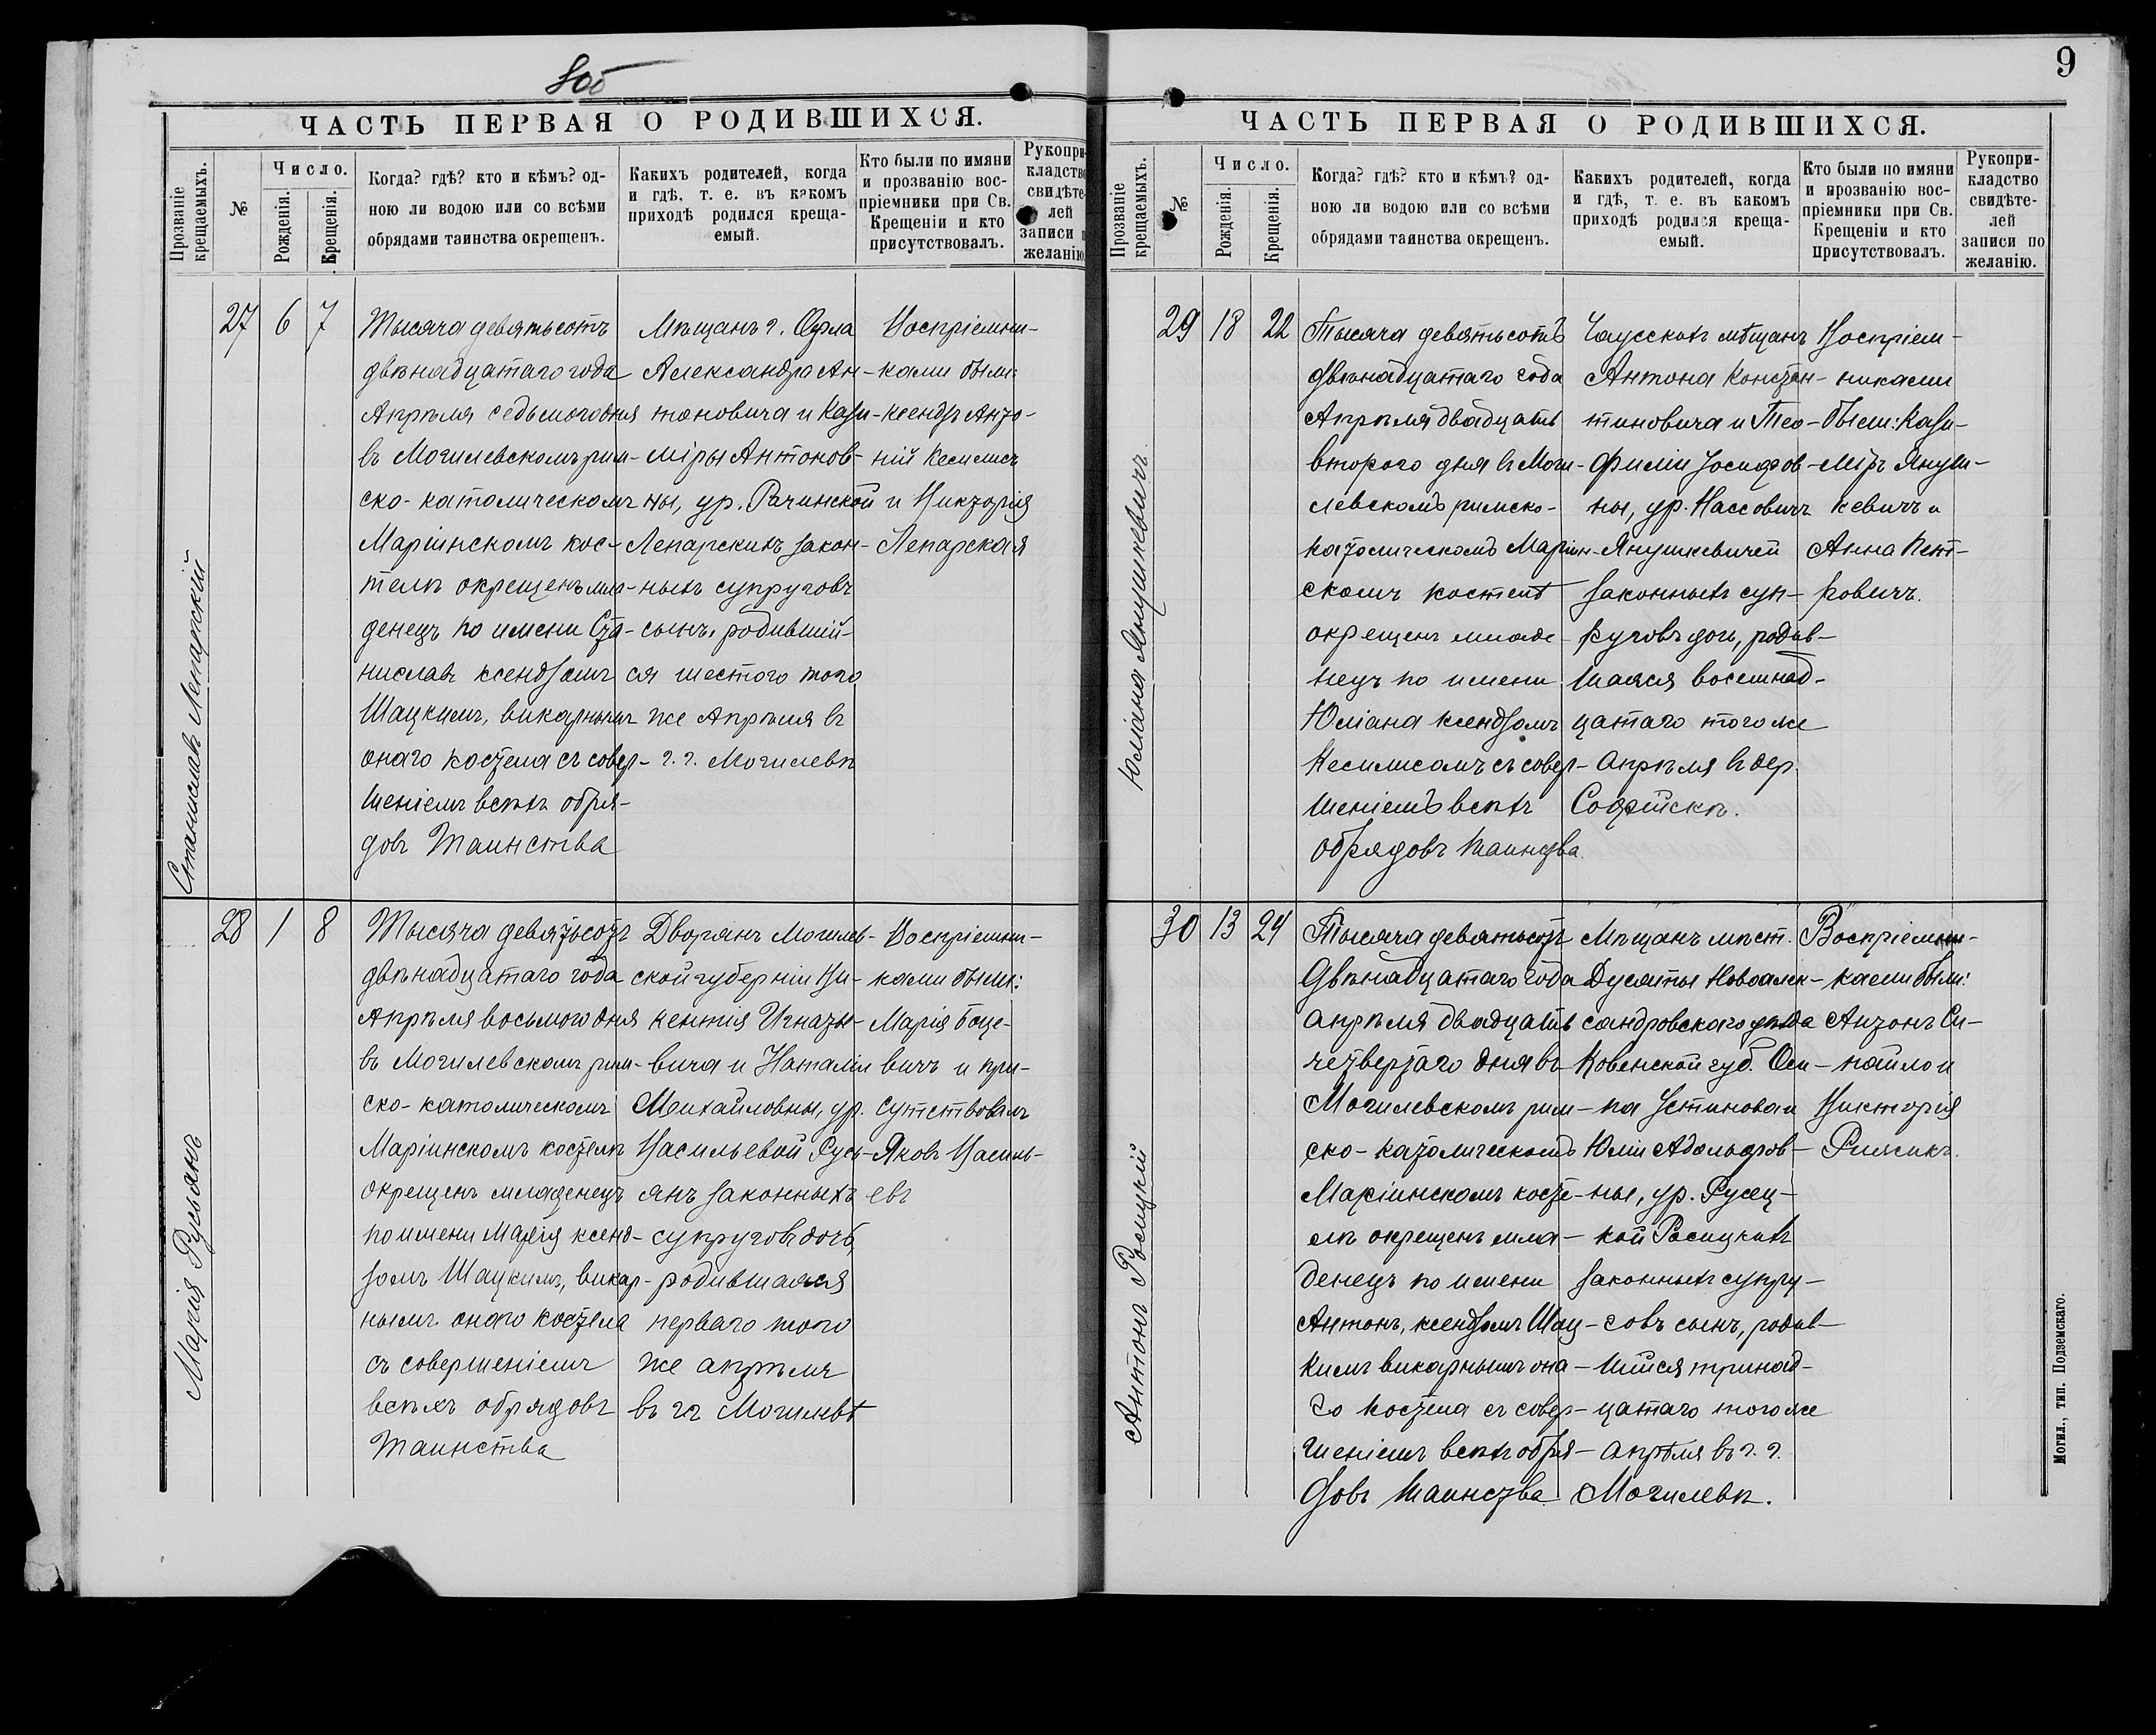 8об
ЧАСТЬ ПЕРВАЯ О РОДИВШИХСЯ.
Прозваніе крещаемыхъ.
№
Число.
Рожденія.
Крещенія.
Когда? гдѣ? кто и кѣмъ? од-
ною ли водою или со всѣми
обрядами таинства окрещенъ.
Какихъ родителей, когда
и гдѣ, т. е. въ какомъ
приходѣ родился креща-
емый.
Кто были по имяни
и прозванію вос-
пріемники при Св.
Крещеніи и кто
присутствовалъ.
Рукопри-
кладство
свидѣте-
лей
записи п
желанію
Станиславъ Лепарскій
27 6 7
Тысяча девятьсотъ
двѣнадцатаго года
Апрѣля седьмого дня
въ Могилевскомъ рим-
ско-католическомъ
Маріинскомъ кос-
телѣ окрещенъ мла-
денецъ по имени Ста-
ниславъ ксендзомъ
Шацкимъ, викарнымъ
онаго костела съ совер-
шеніемъ всѣхъ обря-
довъ Таинства
Мѣщанъ г. Орла
Александра Ан-
тоновича и Кази-
міры Антонов-
ны, ур. Рачинской
Лепарскихъ закон-
ныхъ супруговъ
сынъ, родившій-
ся шестого того
же Апрѣля въ
г. г. Могилевѣ
Воспріемни-
ками были:
ксендзъ Анто-
ній Кесилисъ
и Викторія
Лепарская
Марія Русьянъ
28 1 8
Тысяча девятьсотъ
двѣнадцатаго года
Апрѣля восьмого дня
въ Могилевскомъ рим-
ско-католическомъ
Маріинскомъ костелѣ
окрещенъ младенецъ
по имени Марія ксенд-
зомъ Шацкимъ, викар-
нымъ онаго костела
съ совершеніемъ
всѣхъ обрядовъ
Таинства
Дворянъ Могилев-
ской губерніи Ви-
кентія Игнатье-
вича и Наталіи
Михайловны, ур.
Васильевой Русь-
янъ законныхъ
супруговъ дочь,
родившаяся
перваго того
же апрѣля
въ гг Могилевѣ
Воспріемни-
ками были:
Марія Боце-
вичъ и при-
сутствовалъ
Яковъ Василь-
евъ
9
ЧАСТЬ ПЕРВАЯ О РОДИВШИХСЯ.
Прозваніе крещаемыхъ.
№
Число.
Рожденія.
Крещенія.
Когда? гдѣ? кто и кѣмъ? од-
ною ли водою или со всѣми
обрядами таинства окрещенъ.
Какихъ родителей, когда
и гдѣ, т. е. въ какомъ
приходѣ родился креща-
емый.
Кто были по имяни
и прозванію вос-
пріемники при Св.
Крещеніи и кто
присутствовалъ.
Рукопри-
кладство
свидѣте-
лей
записи по
желанію.
Юліана Янушкевичъ
29 18 22
Тысяча девятьсотъ
двѣнадцатаго года
Апрѣля двадцать
второго дня въ Моги-
левскомъ римско-
католическомъ Маріин-
скомъ костелѣ
окрещенъ младе-
нецъ по имени
Юліана ксендзомъ
Кесилисомъ съ совер-
шеніемъ всѣхъ
обрядовъ таинства.
Чаусскихъ мѣщанъ
Антона Констан-
тиновича и Тео-
филіи Іосифов-
ны, ур. Нассовичъ
Янушкевичей
законныхъ суп-
руговъ дочь, родив-
шаяся восемнад-
цатаго того же
Апрѣля въ дер.
Софійскъ.
Воспріем-
никами
были: Кази-
міръ Януш-
кевичъ и
Анна Пет-
ровичъ.
Антонъ Росицкій
30 13 24
Тысяча девятьсотъ
двѣнадцатаго года
апрѣля двадцать
четвертаго дня въ
Могилевскомъ рим-
ско-католическомъ
Маріинскомъ косте-
лѣ окрещенъ мла-
денецъ по имени
Антонъ, ксендзомъ Шац-
кимъ викарнымъ она-
го костела съ совер-
шеніемъ всѣхъ обря-
довъ таинства
Мѣщанъ мѣст.
Дусяты Новоалек-
сандровскаго уѣзда
Ковенской губ. Оси-
па Устинова и
Юліи Адольфов-
ны, ур. Русец-
кой Росицкихъ
законныхъ супру-
говъ сынъ, родив-
шійся тринад-
цатаго того же
апрѣля въ г. г.
Могилевѣ.
Воспріемни-
ками были:
Антонъ Си-
пайло и
Викторія
Могил., тип. Подземскаго.